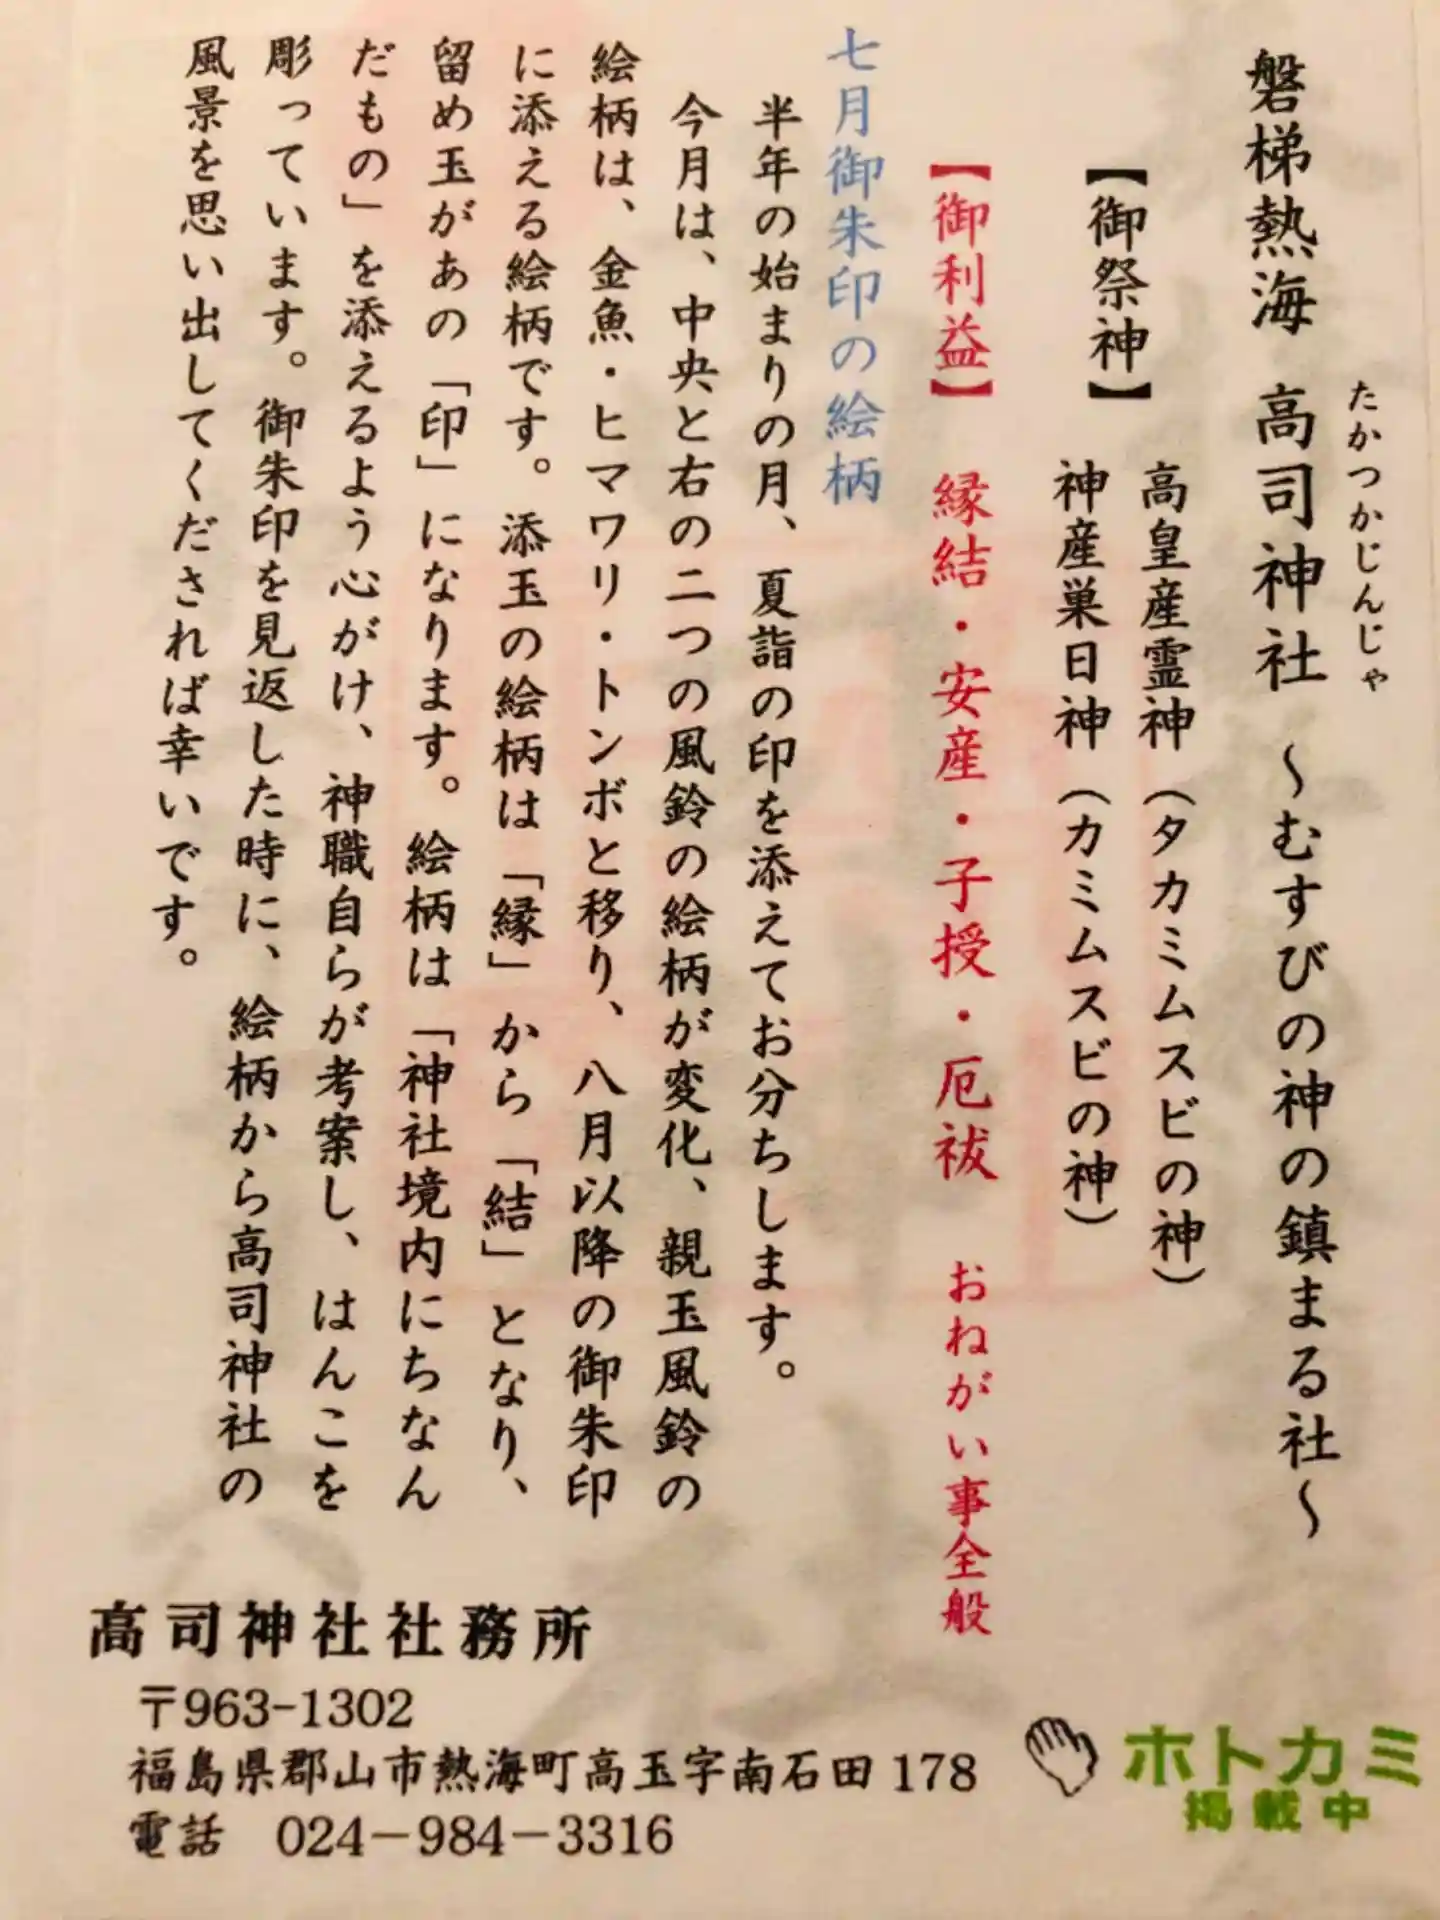 磐梯熱海 高司神社 ～むすびの神の鎮まる社～
たかつかじんじゃ
【御祭神】
高皇産霊神（タカミムスビの神）
神産巣日神（カミムスビの神）
【御利益】 縁結・安産・子授・厄祓 おねがい事全般
七月御朱印の絵柄
半年の始まりの月、夏詣の印を添えてお分ちします。
今月は、中央と右の二つの風鈴の絵柄が変化、親玉風鈴の
絵柄は、金魚・ヒマワリ・トンボと移り、八月以降の御朱印
に添える絵柄です。添玉の絵柄は「縁」から「結」となり、
留め玉があの「印」になります。絵柄は「神社境内にちなん
だもの」を添えるよう心がけ、神職自らが考案し、はんこを
彫っています。御朱印を見返した時に、絵柄から高司神社の
風景を思い出してくだされば幸いです。
高司神社社務所
〒963-1302
福島県郡山市熱海町高玉字南石田178
電話 024－984－3316
ホトカミ
掲載中